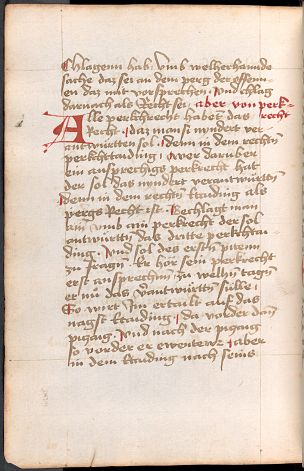 Chlagenn hab. Umb welherhannde
sache daz sei an dem perg der offenn-
en daz mit vorsprechen. Und chlag
darnach als Recht sei. aber von perk-
recht
Alle perkchrecht habent das
Recht. daz man si nyndert ver-
antwurtten sol. denn in dem rechten
perkchtaiding. wer daruber
ein ansprechigs perkrecht hat
der sol das nyndert verantwurtten
denn in dem rechten taiding als
pergs Recht ist. Bechlagt man
ain umb ain perkrecht der sol
antwurttn das dritte perkchtai-
ding. Und sol des ersten
zu fragn. Er hor sein perkrecht
erst ansprechen zu welhn tagen
er im das verantwurtten sulle.
So wirt im ertailt auf das
nagst taiding. da vordert dan
Und nach der
so vordert er aber
in dem taiding nach seins